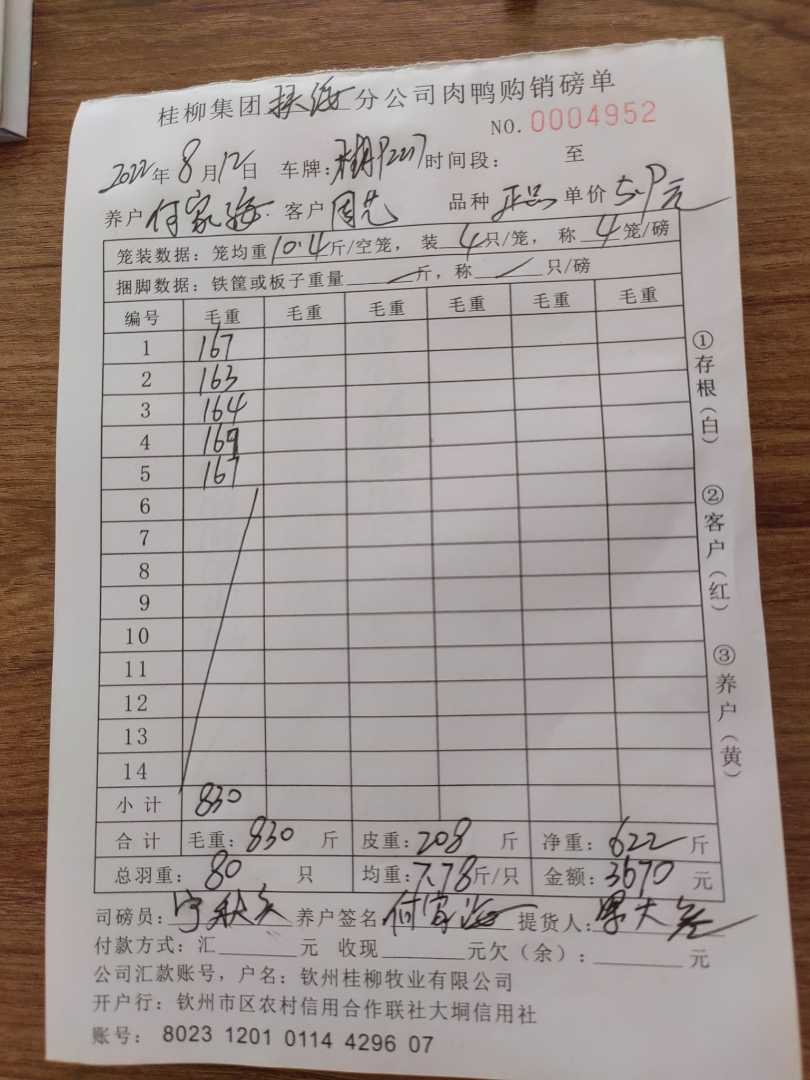 桂柳集团扶海分公司肉鸭购销磅单
NO. 0004952
2022年8月12日 车牌: 时间段: 至
养户何家海 客户周艺 品种正品 单价5.9元
笼装数据: 笼均重10.4斤/空笼, 装4只/笼, 称4笼/磅
捆脚数据: 铁筐或板子重量/斤, 称/只/磅
编号 毛重 毛重 毛重 毛重 毛重 毛重
1 167
2 163
3 164
4 169
5 167
6
7
8
9
10
11
12
13
14
小计 830
合计 毛重: 830 斤 皮重: 208 斤 净重: 622 斤
总羽重: 80 只 均重: 7.78斤/只 金额: 3670 元
司磅员: 养户签名何家海 提货人:
付款方式: 汇 元 收现 元欠(余): 元
公司汇款账号, 户名: 钦州桂柳牧业有限公司
开户行: 钦州市区农村信用合作联社大垌信用社
账号: 8023 1201 0114 4296 07
①存根(白)
②客户(红)
③养户(黄)